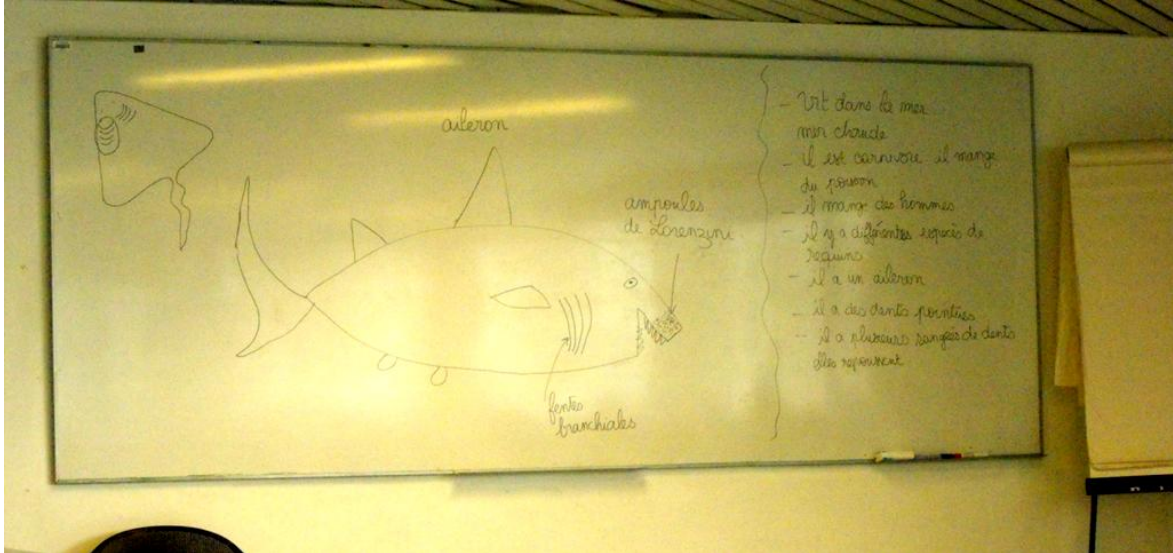 aileron
ampoules
de Lorenzini
fentes
branchiales
- Vit dans la mer
mer chaude
- il est carnivore il mange
du poisson
- il mang des hommes
- il y a différentes espèces de
requins
- il a un aileron
- il a des dents pointues
- il a plusieurs rangées de dents
elles repoussent